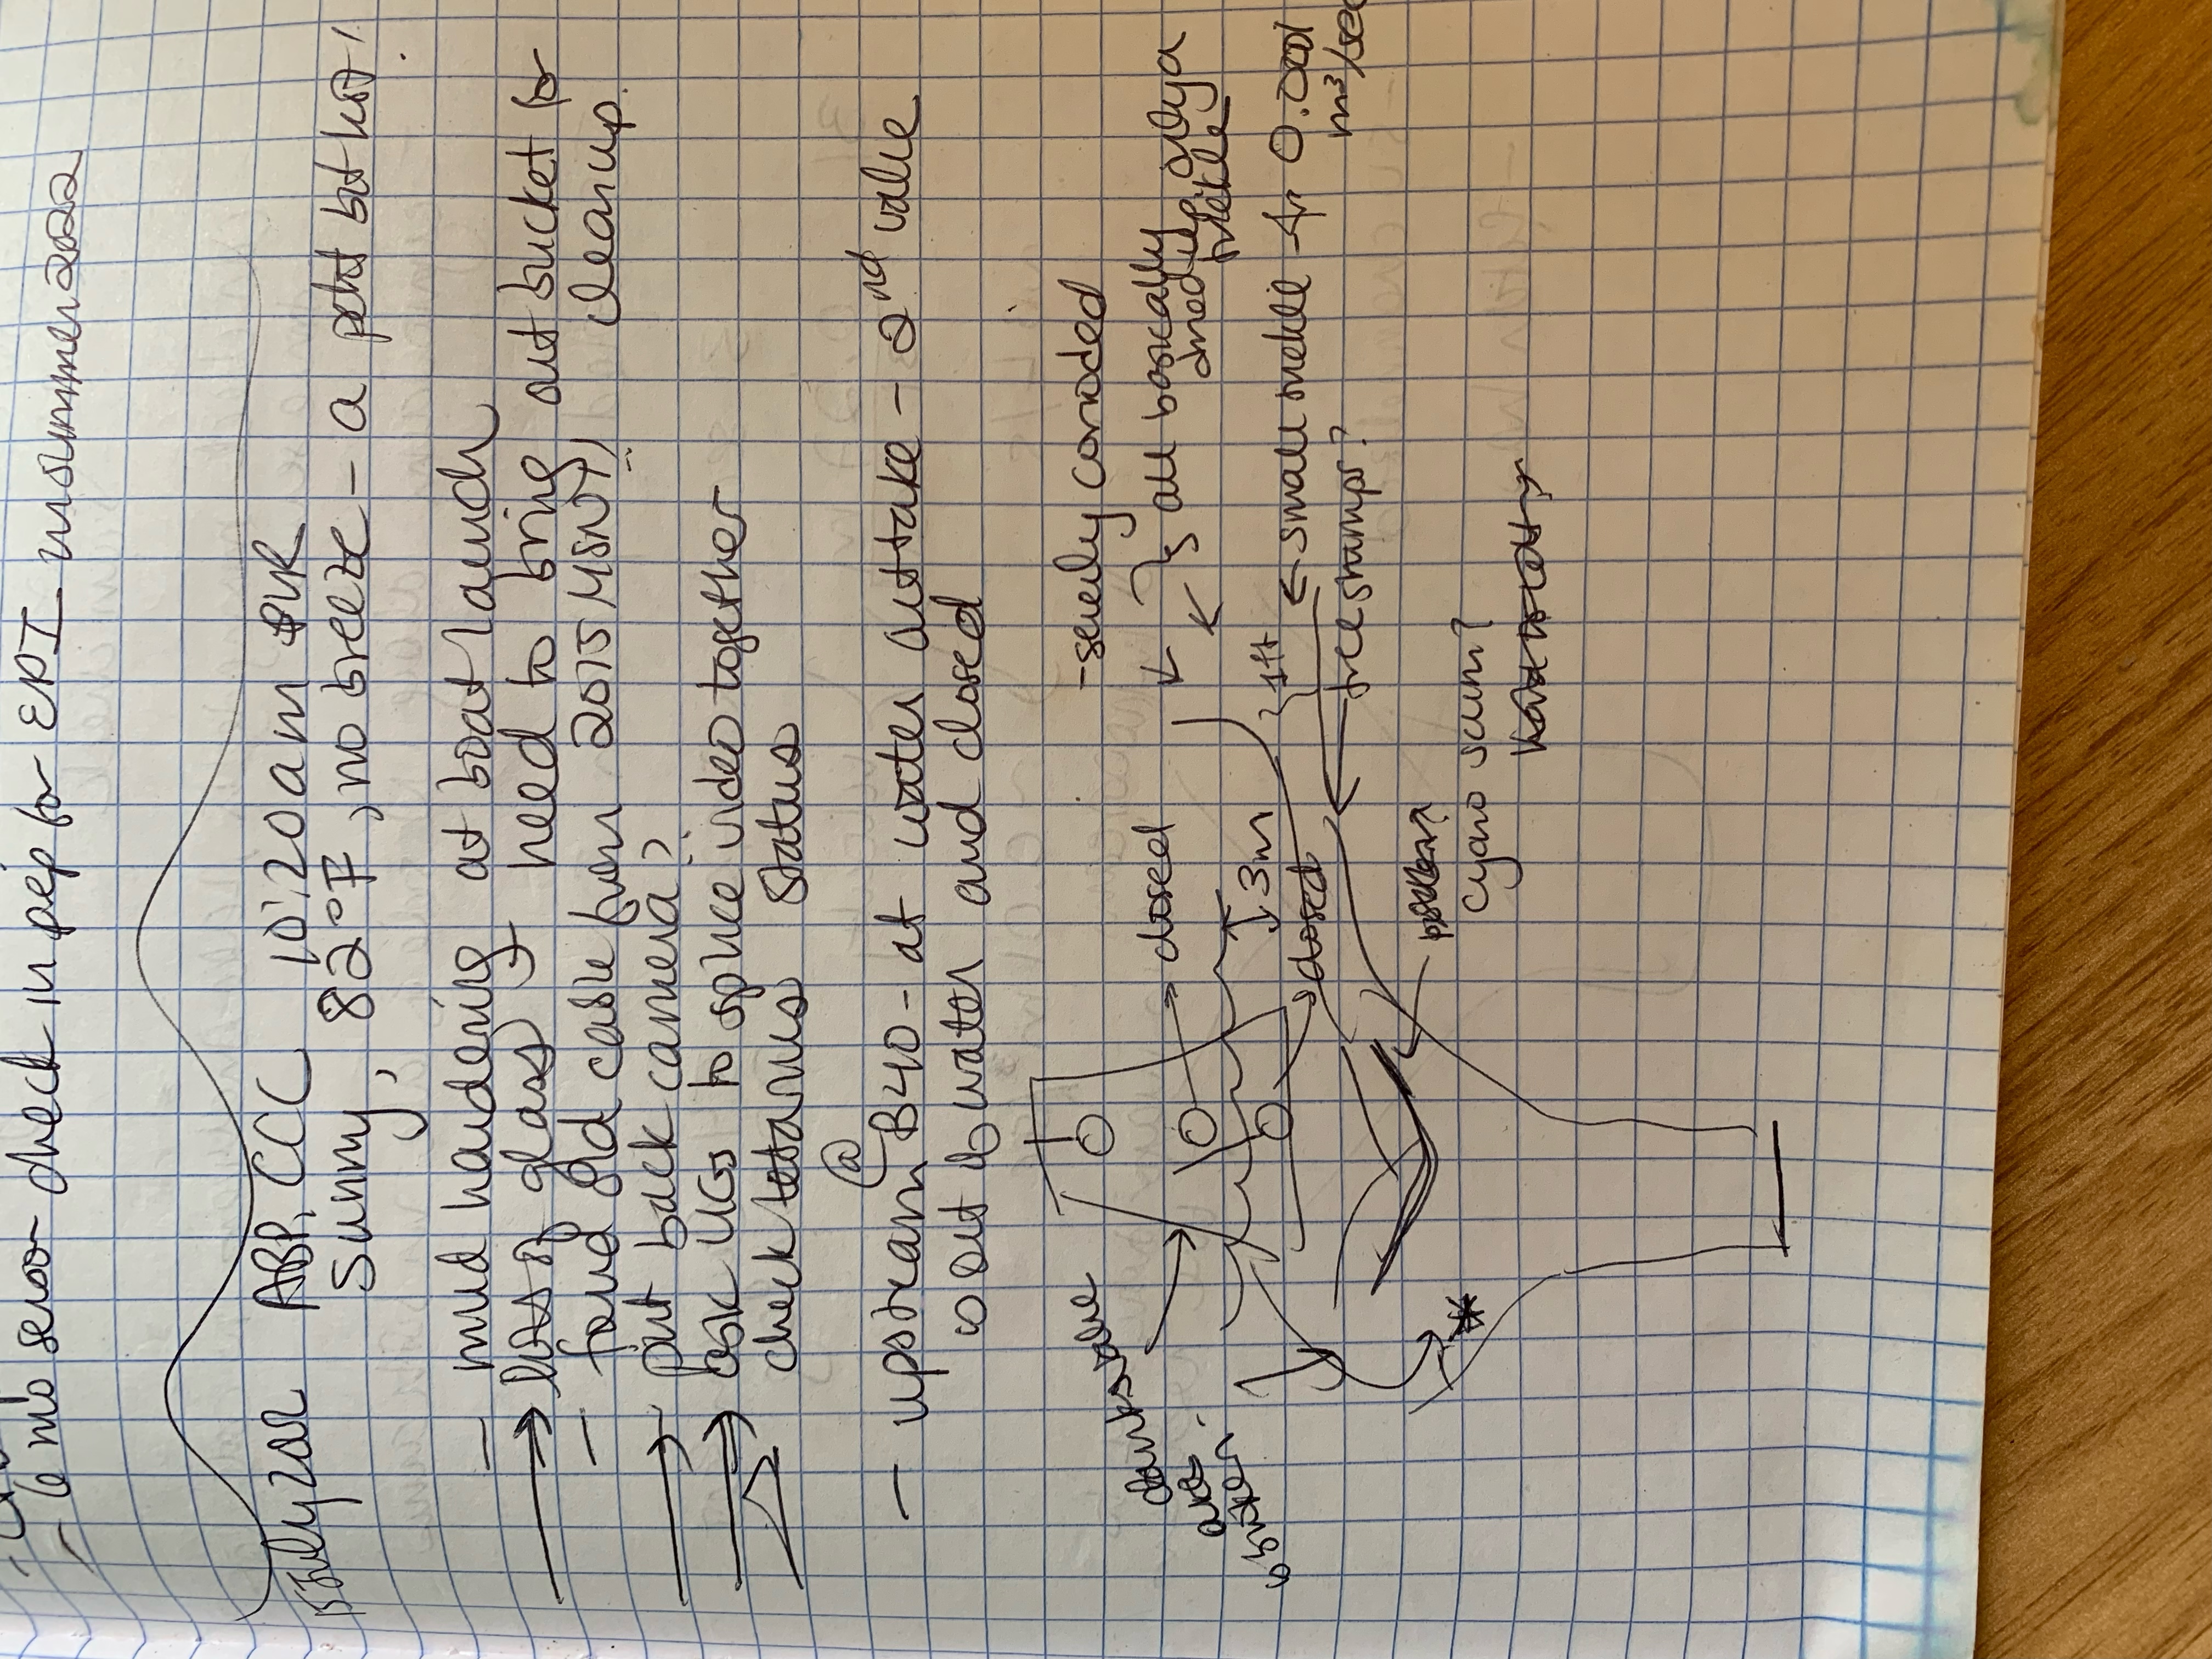 - 6 mo sensor check in prep for EDI in summer 2022
15 July 2022 ABP, CCC 10:20am PVR
sunny, 82°F, no breeze - a petit bit hot!
- mud hardening at boat launch
→ lots of glass - need to bring out bucket for cleanup.
- found old cable from 2015 MSNT!
→ put back camera?
→ ask UGs to splice video together
check tetanus status
@
- upstream B40 - at water outtake - 2nd valve
is out of water and closed
valve
are
broken.
- severely corroded
closed
} all basically
dried up, only a
trickle
3m
closed
1ft
← small trickle 0.0001
m³/sec
tree stumps?
cyano scum?